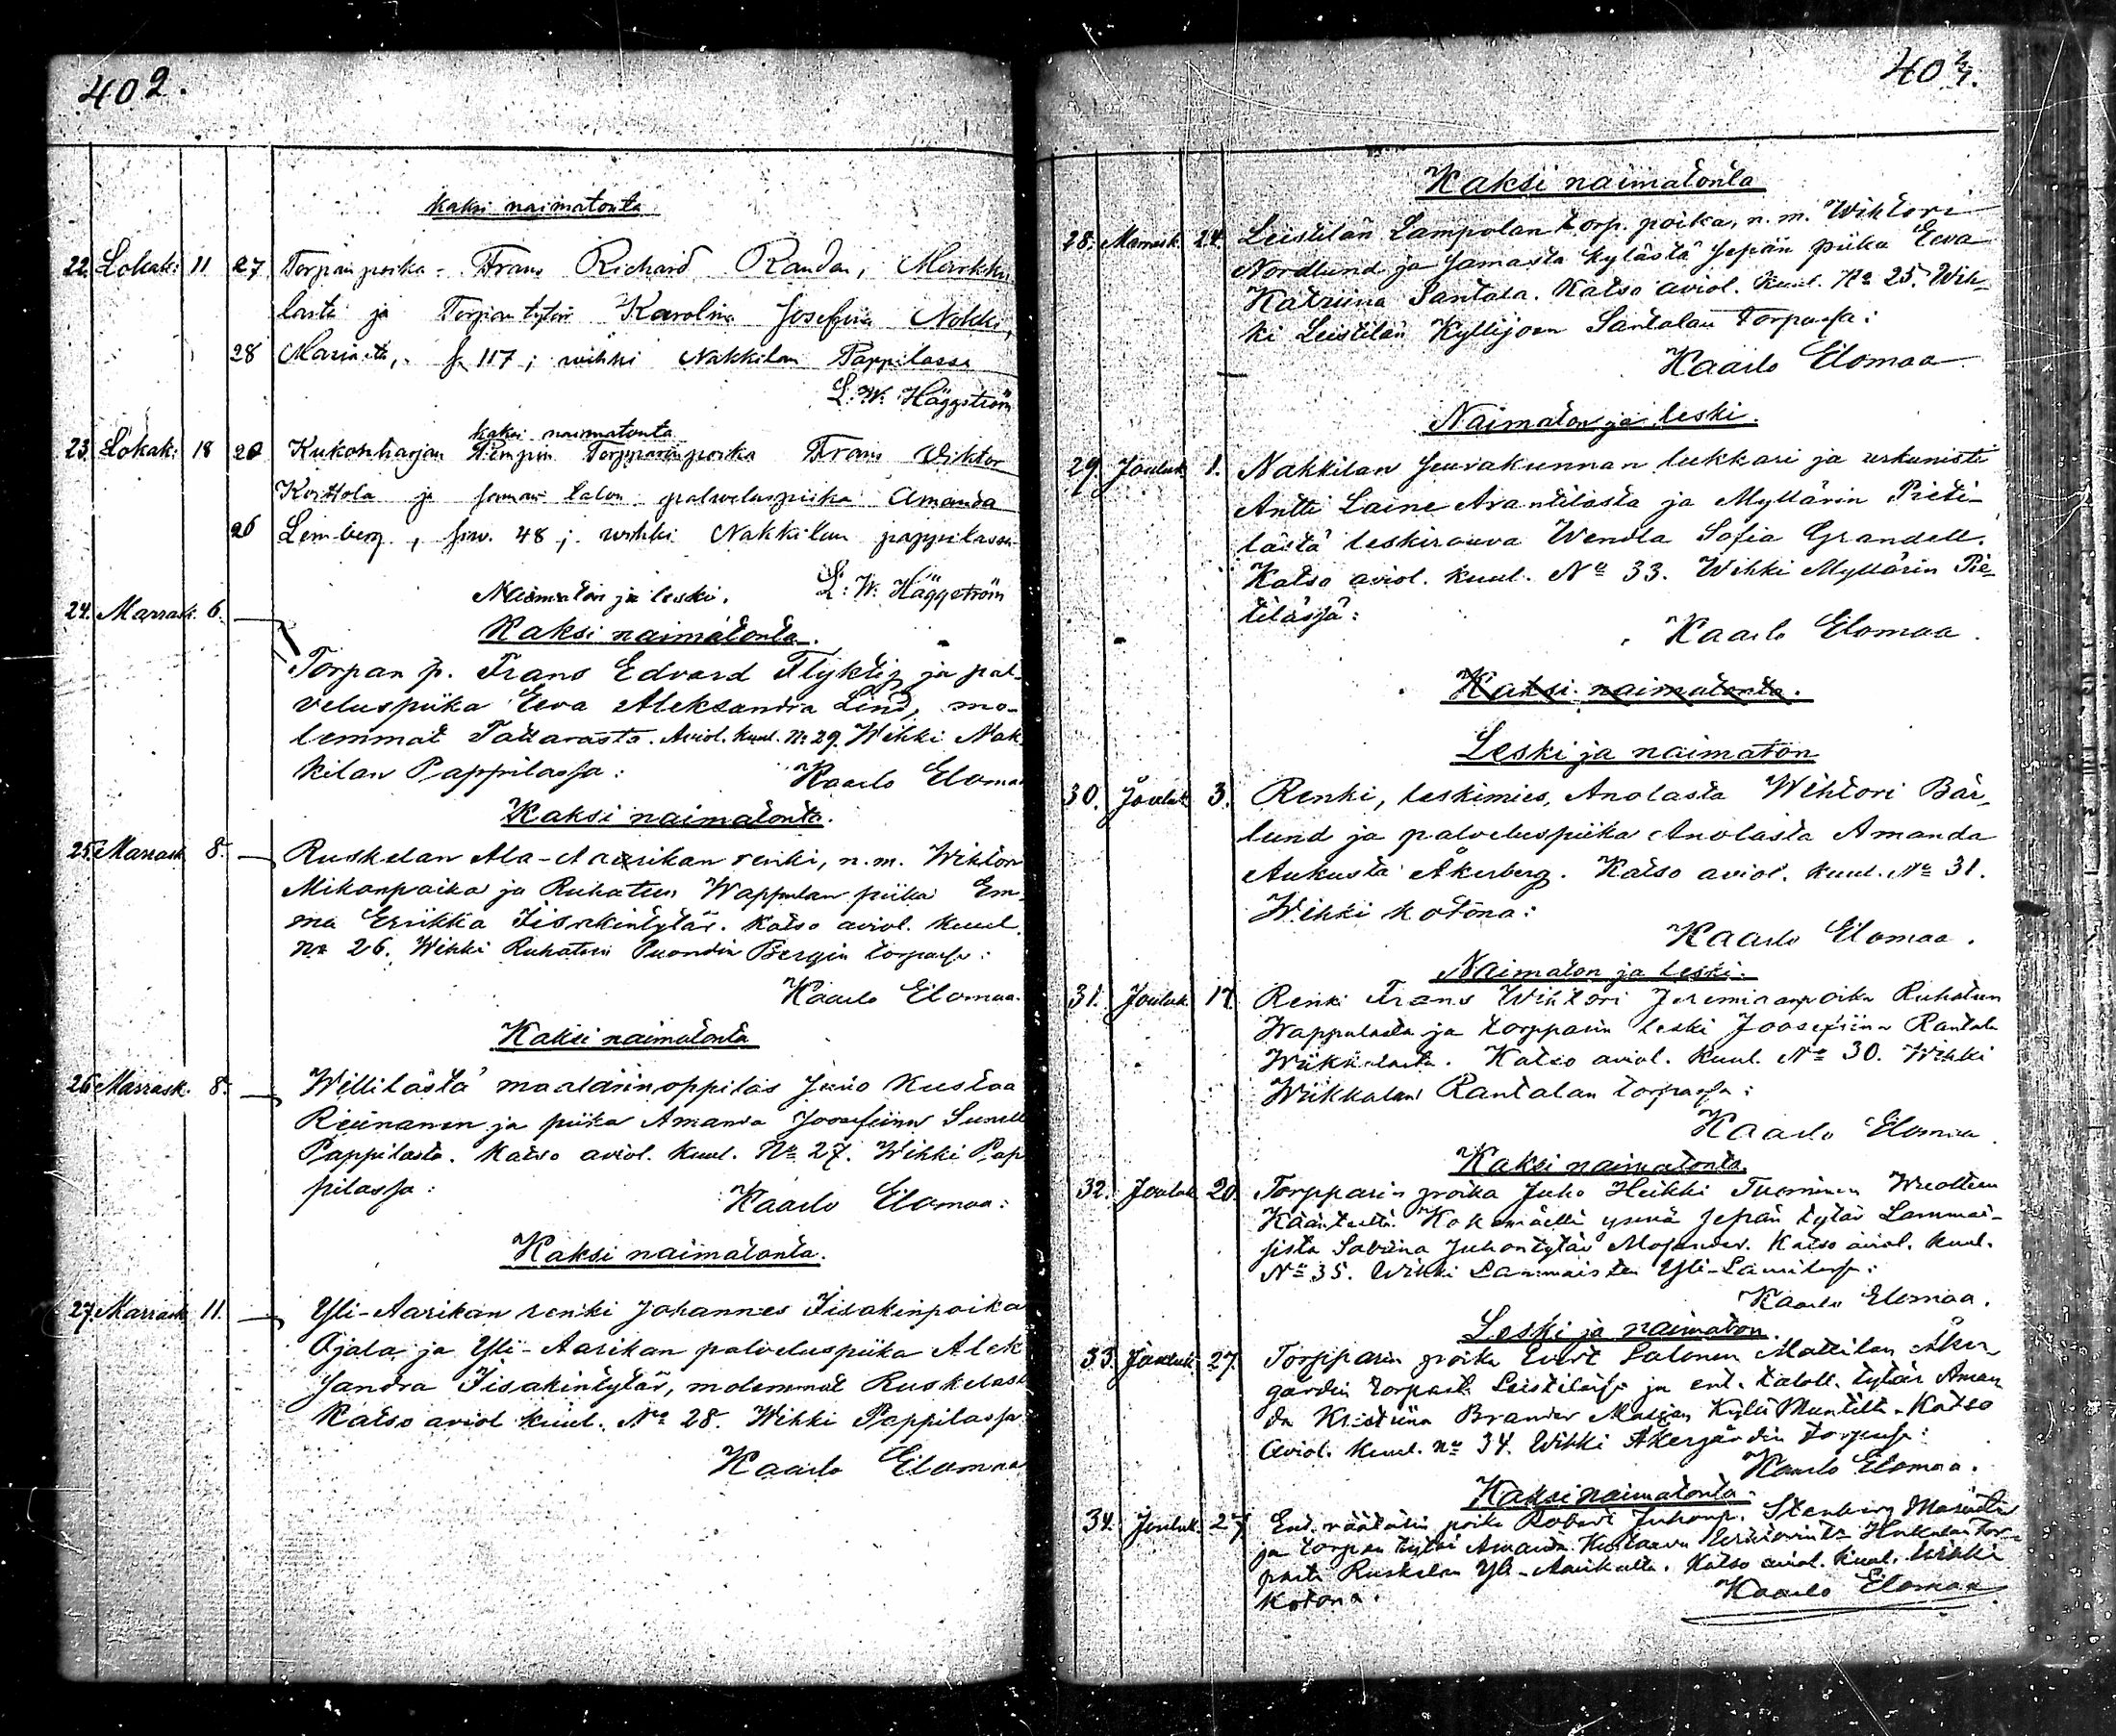 402.
kaksi naimatonta
22. Lokak: 11 27 Torpan poika Frans Richard Randa, Markku
lasta ja Torpan tytär Karolina Josefiina Nohki,
28 117; wihki Nakkilan Pappilassa
L. W. Häggström
kaksi naimatonta
23. Lokak: 18 20 Kukonharjan Torpparinpoika Frans Viktor
ja saman talon palveluspiika Amanda
26 Lemberg, siw. 48; wihki Nakkilan pappilassa
L. W. Häggström
Naimaton ja leski.
24. Marrask. 6.
Kaksi naimatonta.
Torpan p. Frans Edvard Flyktig ja pal-
veluspiika Eeva Aleksandra Lind, mo-
lemmat Tattarasta. Aviol. kuul. No 29. Wihki Nak-
kilan Pappilassa:
Kaarlo Elomaa
Kaksi naimatonta.
25. Marrask. 8. Ruskelan Ala-Aarikan renki, n.m. Wihtori
Mikonpoika ja Ruhatun Wappulan piika Em-
ma Eriikka Iisakintytär. Katso aviol. kuul.
No 26. Wihki Ruhatun Bergin torpassa:
Kaarlo Elomaa.
Kaksi naimatonta
26. Marrask. 8. Willilästä maalarinoppilas Juho Kustaa
ja piika Amanda Joosefiina
Pappilasta. Katso aviol. kuul. No 27. Wihki Pap
pilassa:
Kaarlo Elomaa:
Kaksi naimatonta.
27. Marrask. 11. Yli-Aarikan renki Johannes Iisakinpoika
Ojala ja Yli-Aarikan palveluspiika Alek
sandra Iisakintytär, molemmat Ruskelast
Katso aviol kuul. No 28. Wihki Pappilassa:
Kaarlo Elomaa
403.
Kaksi naimatonta
28. Marrask. 24. Leistilän Lampolan torp. poika, n.m. Wihtori
Nordlund ja samasta kylästä sepän piika Eeva
Katriina Santala. Katso aviol. kuul. No 25. Wih-
ki Leistilän Kyllijoen Santalan torpassa:
Kaarlo Elomaa
Naimaton ja leski.
29. Jouluk. 1. Nakkilan seurakunnan lukkari ja urkunisti
Antti Laine Arantilasta ja Myllärin Pieti-
lästä leskirouva Wendla Sofia Grandell.
Katso aviol. kuul. No 33. Wihki Myllärin Pie-
tilässä:
Kaarlo Elomaa.
Kaksi naimatonta.
Leski ja naimaton
30. Jouluk. 3. Renki, leskimies, Anolasta Wihtori Bär-
lund ja palveluspiika Anolasta Amanda
Aukusta Åkerberg. Katso aviol. kuul. No 31.
Wihki kotona:
Kaarlo Elomaa.
Naimaton ja leski.
31. Jouluk. 17. Renki Frans Wihtori Jeremianpoika Ruhatun
Wappulasta ja torpparin leski Joosefiina Rantala
Wiikkalasta. Katso aviol. kuul. No 30. Wihki
Wiikkalan Rantalan torpassa:
Kaarlo Elomaa.
Kaksi naimatonta.
32. Jouluk. 20. Torpparin poika Juho Heikki Tuominen
Kokemäellä sepän tytär Lammai-
sista Sabiina Juhontytär Katso aviol. kuul.
No 35. Wihki Lammaisten Yli-Laurilassa:
Kaarlo Elomaa.
Leski ja naimaton.
33. Jouluk. 27. Torpparin poika Evert Salonen Mattilan Åker-
gårdin torpasta Leistilässä ja ent. taloll. tytär Aman
da Kristiina Brander Katso
aviol. kuul. No 34. Wihki Åkergårdin torpassa:
Kaarlo Elomaa.
Kaksi naimatonta.
34. Jouluk. 27 Ent. räätälin poika Robert Juhonp. Stenberg
ja torpan tytär Amanda Tor-
pasta Ruskelan Yli-Aarikalta. Katso aviol. kuul. Wihki
kotona.
Kaarlo Elomaa